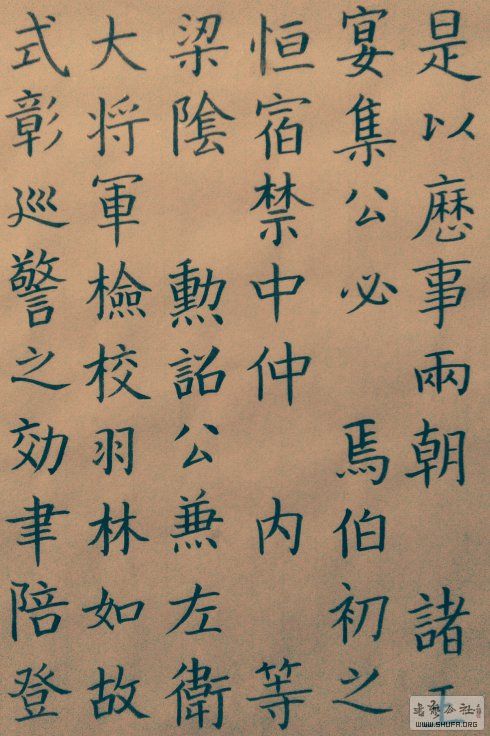 是以歷事兩朝 諸王
宴集公必 焉伯初之
恒宿禁中仲 内 等
梁陰 勳詔公兼左衛
大将軍檢校羽林如故
式彰巡警之効聿陪登
WWW.SHUFA.ORG